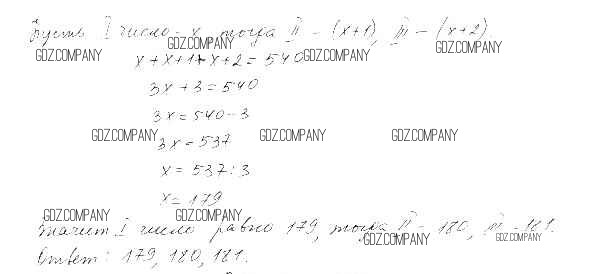 Пусть I число - x, тогда II - (x+1), III - (x+2).
GDZ.COMPANY GDZ.COMPANY GDZ.COMPANY GDZ.COMPANY
x + x+1 + x+2 = 540
3x + 3 = 540
3x = 540 - 3
GDZ.COMPANY GDZ.COMPANY GDZ.COMPANY
3x = 537
x = 537 : 3
x = 179
GDZ.COMPANY GDZ.COMPANY
Значит I число равно 179, тогда II - 180, III - 181.
GDZ.COMPANY GDZ.COMPANY
Ответ: 179, 180, 181.